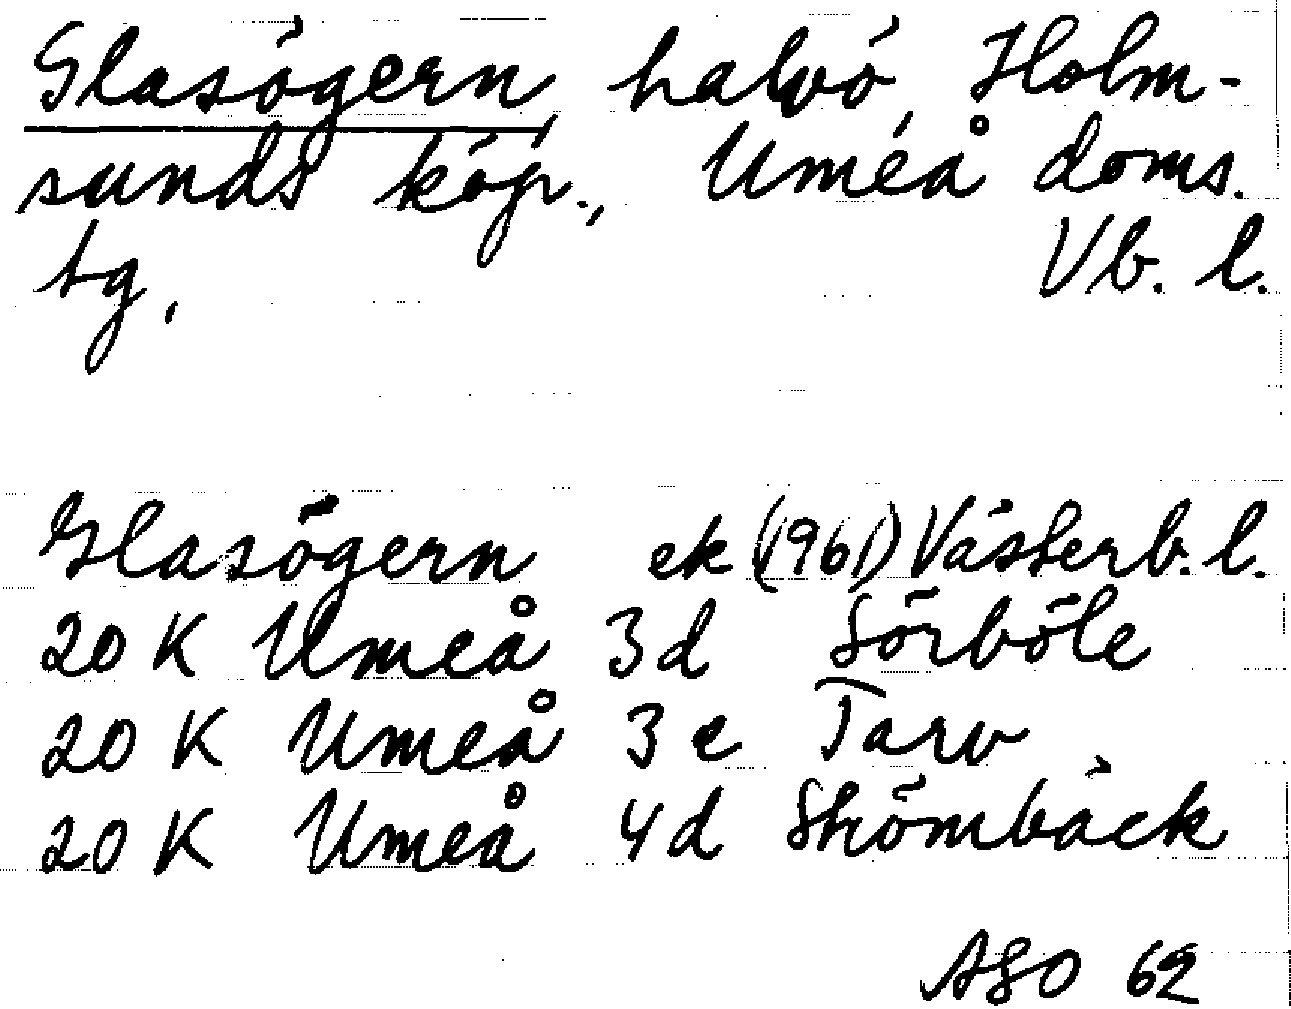 Glasögern, halvö, Holm-
sunds köp., Umeå doms.
tg, Vb. l.
Glasögern ek (1961) Västerb. l.
20 K Umeå 3d Sörböle
20 K Umeå 3e Tarv
20 K Umeå 4d Strömbäck
ASO 62